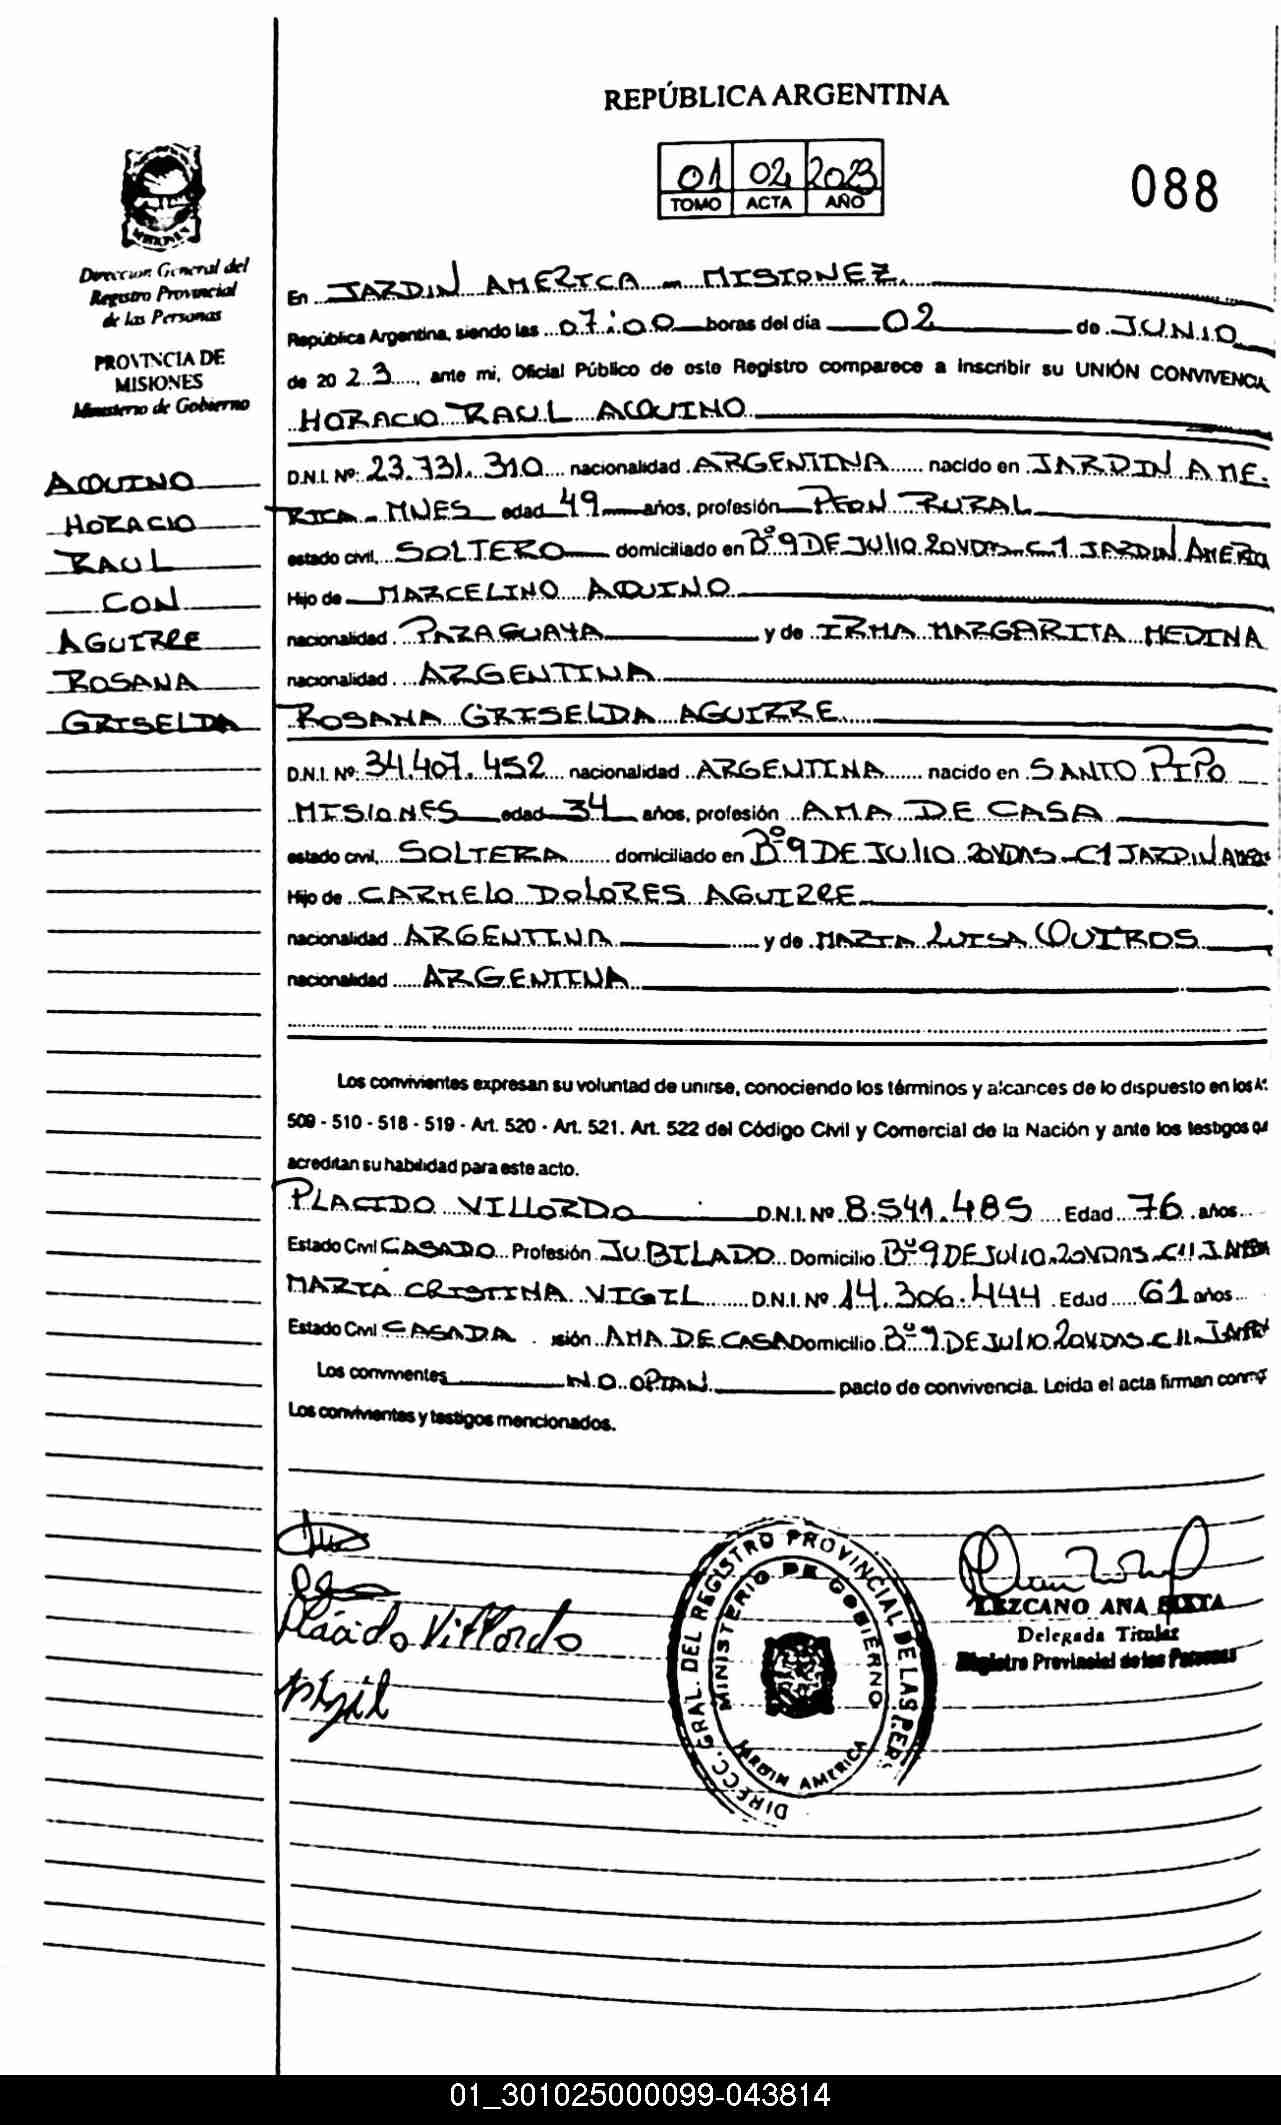 REPÚBLICA ARGENTINA
01 02 2023
TOMO ACTA AÑO
088
Direccion General del
Registro Provincial
de las Personas
PROVINCIA DE
MISIONES
Ministerio de Gobierno
AQUINO
HORACIO
RAUL
CON
AGUIRRE
ROSANA
GRISELDA
En JARDIN AMERICA - MISIONEZ
República Argentina, siendo las 07:00 horas del día 02 de JUNIO
de 20 23, ante mi, Oficial Público de este Registro comparece a inscribir su UNIÓN CONVIVENCIA
HORACIO RAUL AQUINO
D.N.I. Nº: 23.731.310 nacionalidad ARGENTINA nacido en JARDIN AME-
RICA - MNES edad 49 años, profesión PEON RURAL
estado civil, SOLTERO domiciliado en Bº 9 DE JULIO 20VDAS-C1 JARDIN AMERICA
Hijo de MARCELINO AQUINO
nacionalidad PARAGUAYA y de IRMA MARGARITA MEDINA
nacionalidad ARGENTINA
ROSANA GRISELDA AGUIRRE
D.N.I. Nº: 34.407.452 nacionalidad ARGENTINA nacido en SANTO PIPO
MISIONES edad 34 años, profesión AMA DE CASA
estado civil, SOLTERA domiciliado en Bº 9 DE JULIO 20VDAS-C1 JARDIN
Hijo de CARMELO DOLORES AGUIRRE
nacionalidad ARGENTINA y de MARIA LUISA QUIROS
nacionalidad ARGENTINA
Los convivientes expresan su voluntad de unirse, conociendo los términos y alcances de lo dispuesto en los
509 - 510 - 518 - 519 - Art. 520 - Art. 521. Art. 522 del Código Civil y Comercial de la Nación y ante los testigos
acreditan su habilidad para este acto.
PLACIDO VILLORDO D.N.I. Nº 8.541.485 Edad 76 años
Estado Civil CASADO Profesión JUBILADO Domicilio Bº 9 DE JULIO 20VDAS-C11
MARIA CRISTINA VIGIL D.N.I. Nº 14.306.444 Edad 61 años
Estado Civil CASADA sión AMA DE CASA Domicilio Bº 9 DE JULIO 20VDAS-C11
Los convivientes NO OPTAN pacto de convivencia. Leída el acta firman
Los convivientes y testigos mencionados.
Placido Villordo
Vigil
DIRECC. GRAL. DEL REGISTRO PROVINCIAL DE LAS PER.
MINISTERIO DE GOBIERNO
JARDIN AMERICA
LEZCANO ANA
Delegada Titular
Registro Provincial de las Personas
01_301025000099-043814